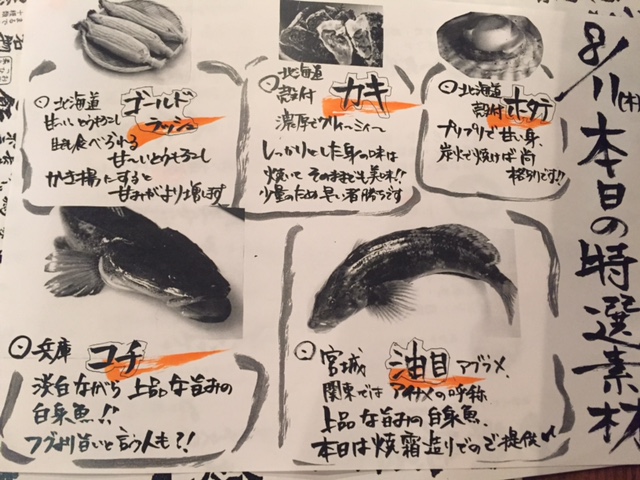 8/11(木)本日の特選素材
北海道
殻付 ホタテ
プリプリで甘い身、
炭火で焼けば尚
格別です!!
北海道
殻付 カキ
濃厚でクリーミィー
しっかりとした身の味は
焼いて そのままでも美味!!
少量のため早い者勝ちです
北海道 ゴールド
ラッシュ
甘〜いとうもろこし
生でも食べられる
甘〜いとうもろこし
かき揚にすると
甘みがより増します
宮城 油目 アブラメ
関東ではアイナメの呼称
上品な旨みの白身魚、
本日は焼霜造りでのご提供
兵庫 コチ
淡白ながら 上品な旨みの
白身魚!!
フグより旨いと言う人も?!